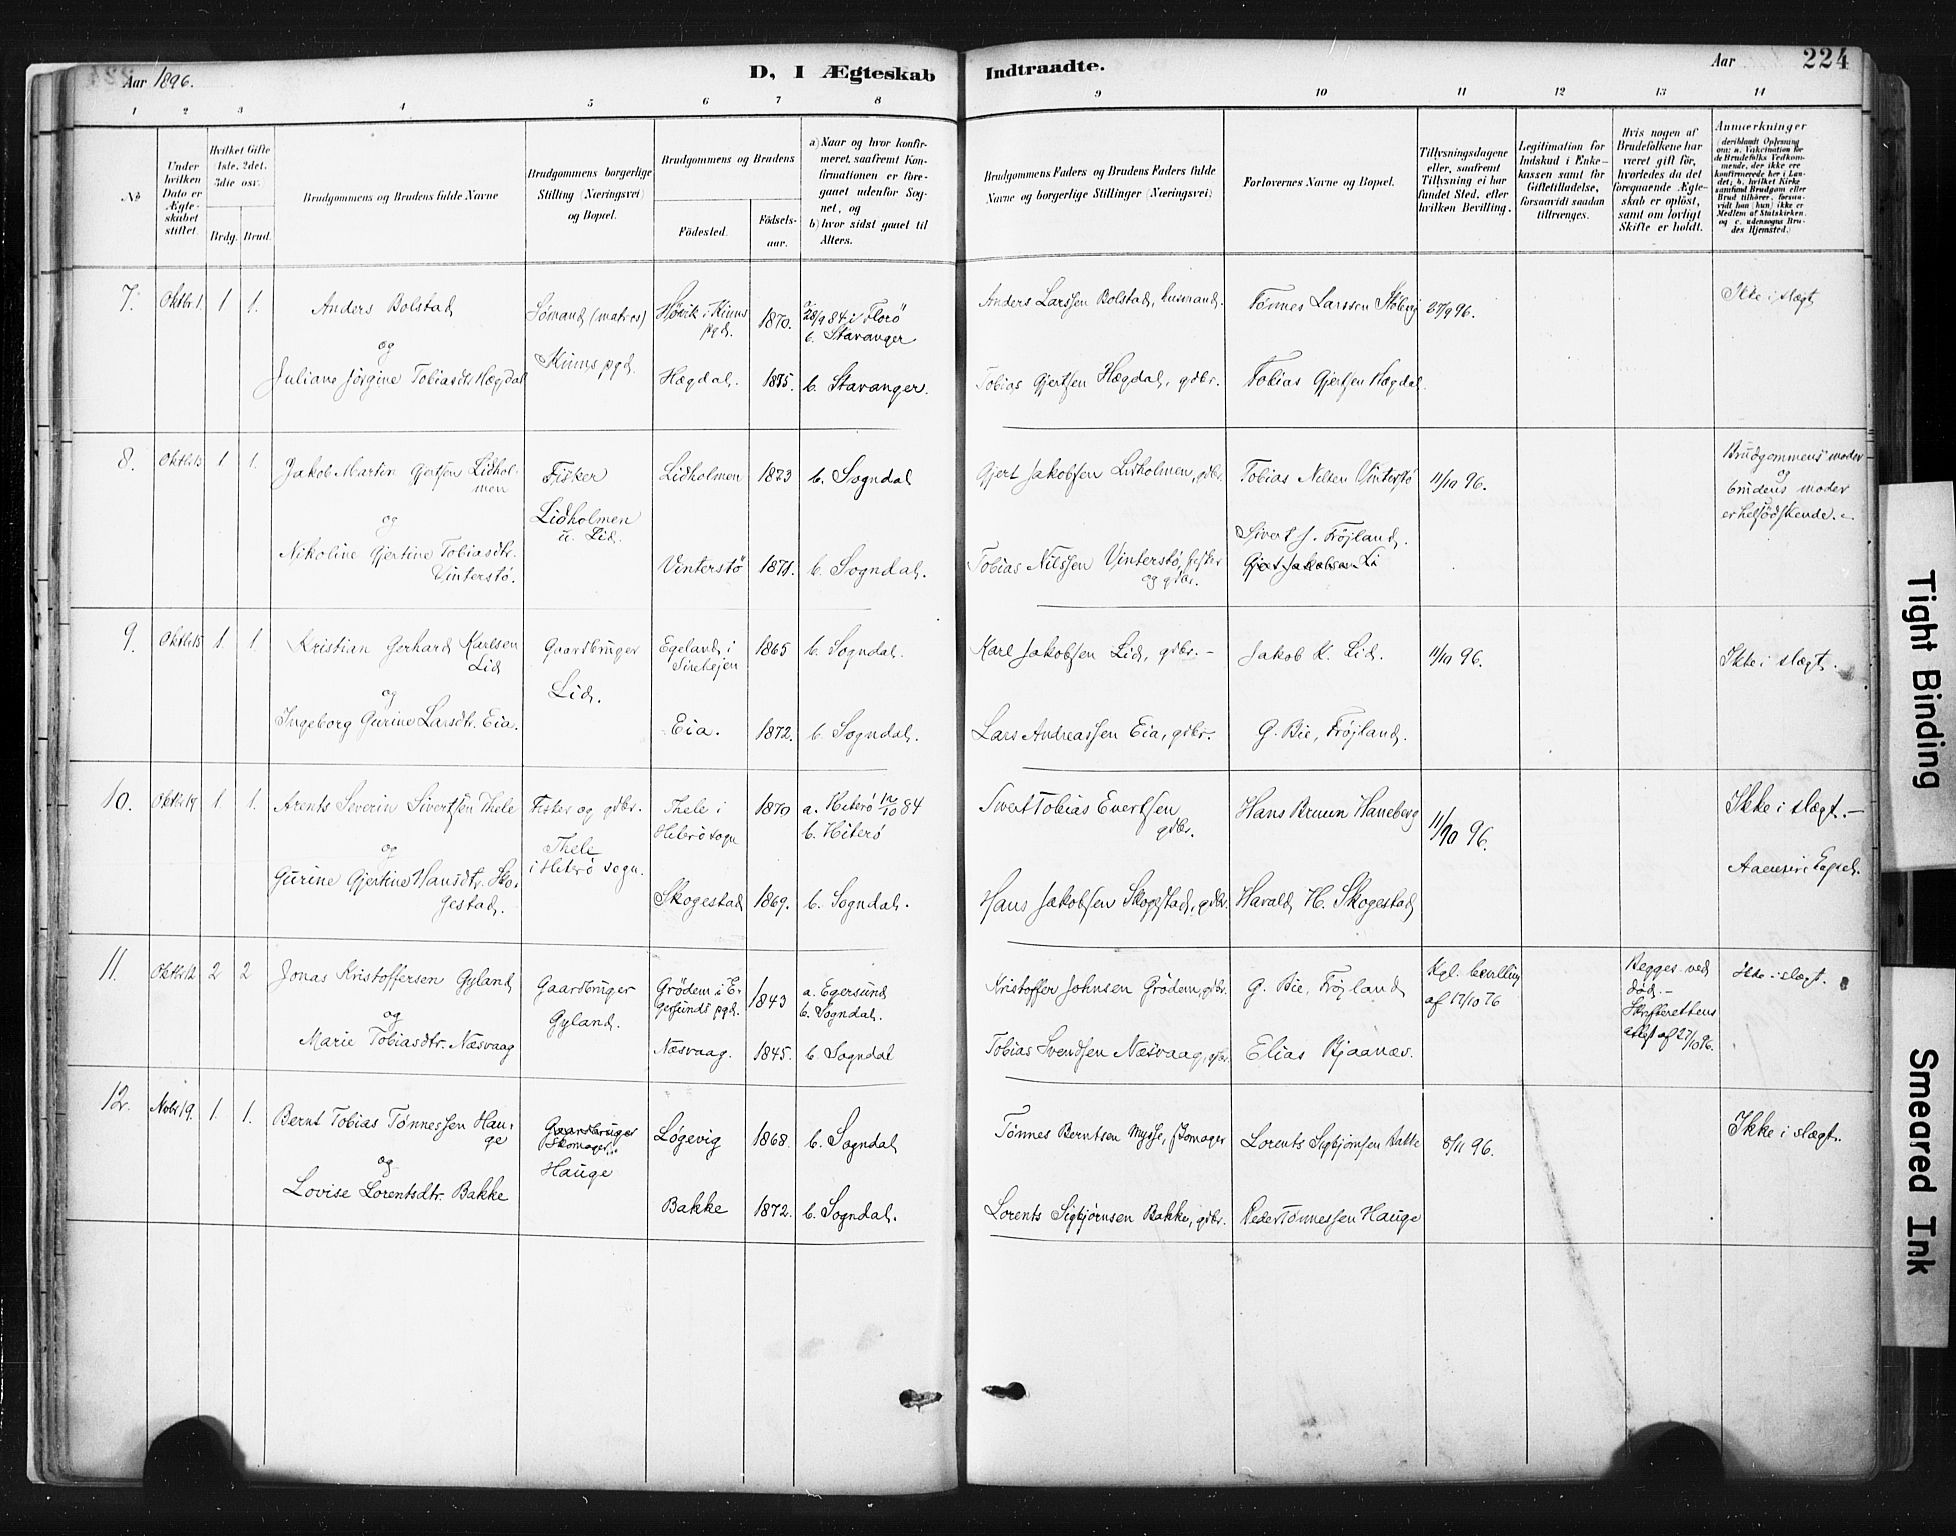 Aar 1896.
D, I Ægteskab Indtraadte.
Aar
224
1 2 3 4 5 6 7 8 9 10 11 12 13 14
No
Under hvilken Dato er Ægteskabet stiftet.
Hvilket Gifte (1ste, 2det, 3die osv.
Brdg. Brud.
Brudgommens og Brudens fulde Navne
Brudgommens borgerlige Stilling (Næringsvei) og Bopæl.
Brudgommens og Brudens
Fødested.
Fødselsaar.
a) Naar og hvor konfirmeret, saafremt Konfirmationen er foregaaet udenfor Sognet, og
b) hvor sidst gaaet til Alters.
Brudgommens Faders og Brudens Faders fulde Navne og borgerlige Stillinger (Næringsvei)
Forlovernes Navne og Bopæl.
Tillysningsdagene eller, saafremt Tillysning ei har fundet Sted, efter hvilken Bevilling.
Legitimation for Indskud i Enkekassen samt for Giftetilladelse, forsaavidt saadan tiltrænges.
Hvis nogen af Brudefolkene har været gift før, hvorledes da det foregaaende Ægteskab er opløst, samt om lovligt Skifte er holdt.
Anmerkninger (deriblandt Oplysning om: a. Vakcination for de Brudefolks Vedkommende, der ikke ere konfirmerede her i Landet; b. hvilket Kirkesamfund Brudgom eller Brud tilhører, forsaavidt han (hun) ikke er Medlem af Statskirken, og c. udensogns Brudes Hjemsted.)
7. Oktbr 1 1 1.
Anders Bolstad
og
Juliane Jørgine Tobiasdtr. Hægdal
Sømand (matros)
Kinns pgd.
Høvik i Kinns pgd. 1870. 28/9 84 i Florø
b. Stavanger
Hægdal. 1875. b. Stavanger.
Anders Larssen Bolstad, husmand.
Tobias Gjertsen Hægdal, gdbr.
Tønnes Larssen
Tobias Gjertsen Hægdal
27/9 96.
Ikke i slægt
8. Oktbr 15 1 1.
Jakob Martin Gjertsen Lidholmen
og
Nikoline Gjertine Tobiasdtr. Vinterstø.
Fisker
Lidholmen u. Lid.
Lidholmen 1873 b. Sogndal
Vinterstø 1871. b. Sogndal.
Gjert Jakobsen Lidholmen, gdbr.
Tobias Nilssen Vinterstø, fisker og gdbr.
Tobias Nilsen Vinterstø
Sivert J. Frøjland.
Gjert Jakobsen Li
11/10 96.
Brudgommens moder
og
brudens moder
er helsødskende.
9. Oktbr 15 1. 1.
Kristian Gerhard Karlsen Lid
og
Ingeborg Gurine Larsdtr. Eia.
Gaardbruger
Lid.
Egeland i 1865 b. Sogndal.
Eia. 1872. b. Sogndal.
Karl Jakobsen Lid, gdbr. -
Lars Andreassen Eia, gdbr.
Jakob K. Lid.
G. Bie, Frøjland.
11/10 96.
Ikke i slægt.
10. Oktbr 19 1. 1.
Arents Severin Sivertsen Thele
og
Gurine Gjertine Hansdtr. Skogestad.
Fisker og gdbr.
Thele
i Hiterø sogn.
Thele i Hiterø sogn 1870 a. Hiterø 12/10 84
b. Hiterø
Skogestad 1869. b. Sogndal.
Sivert Tobias Evertsen
gdbr.
Hans Jakobsen Skogestad, gdbr.
Hans Bruun Haneberg
Harald H. Skogestad
11/10 96.
Ikke i slægt. -
11. 2 2
Jonas Kristoffersen Gyland
og
Marie Tobiasdtr. Næsvaag
Gaardbruger
Gyland.
Grødem i Egersunds pgd. 1843 a. Egersund
b. Sogndal.
Næsvaag. 1845. b. Sogndal
Kristoffer Johnsen Grødem, gdbr.
Tobias Svendsen Næsvaag,
G. Bie, Frøjland
Elias
Kgl. bevilling
af 17/10 76
Begges ved
død. -
Skifterettens
attest af 27/10 96.
Ikke i slægt.
12. Nobr 19. 1. 1.
Bernt Tobias Tønnessen Hauge
og
Lovise Lorentsdtr. Bakke
Gaardbruger
Skomager
Hauge
Løgevig 1868. b. Sogndal
Bakke 1872. b. Sogndal.
Tønnes Berntsen Mysse, skomager
Lorents Sigbjørnsen Bakke, gdbr.
Lorents Sigbjørnsen Bakke
Peder Tønnessen Hauge
8/11 96.
Ikke i slægt.
Tight Binding
Smeared Ink